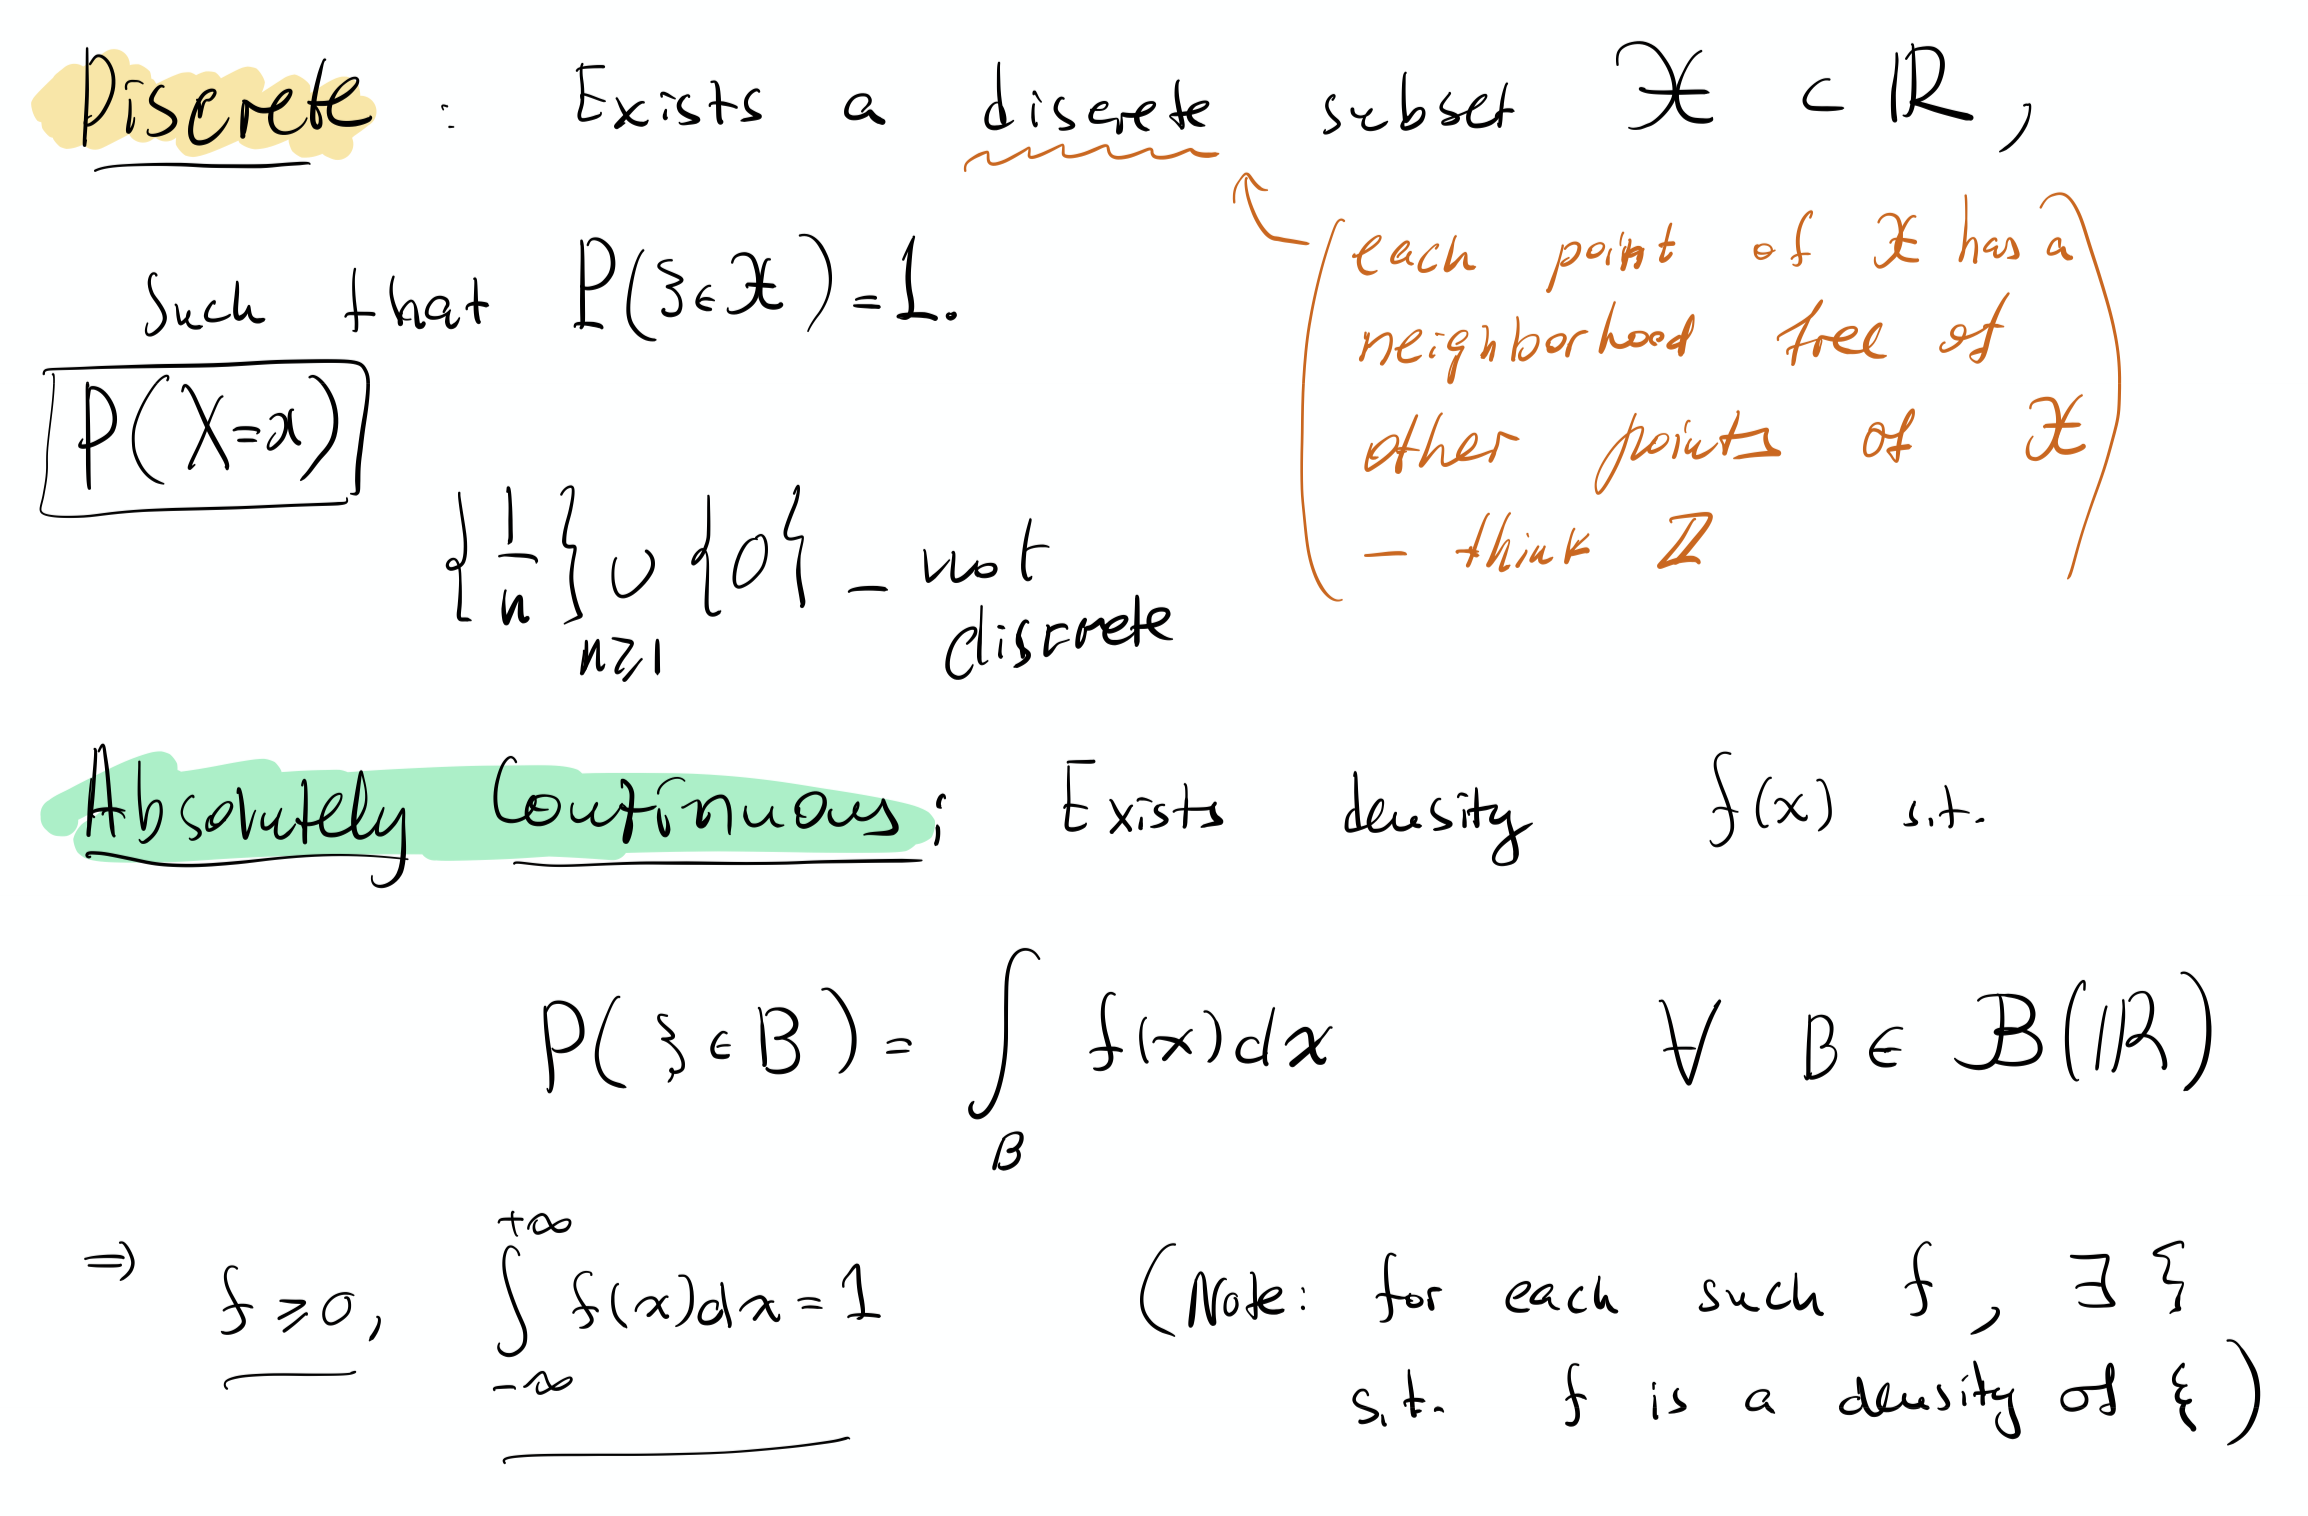 Discrete : Exists a discrete subset 𝒳 ⊂ ℝ,
such that P(ξ∈𝒳)=1.
(each point of 𝒳 has a
neighborhood free of
other points of 𝒳
— think ℤ)
P(X=x)
{1/n}n≥1 ∪ {0} – not
discrete
Absolutely Continuous: Exists density f(x) s.t.
P(ξ∈B) = ∫_B f(x)dx ∀ B ∈ ℬ(ℝ)
⇒ f≥0, ∫_{-∞}^{+∞} f(x)dx=1 (Note: for each such f, ∃ ξ
s.t. f is a density of ξ)